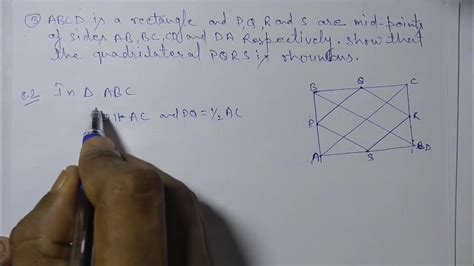 ③ ABCD is a rectangle and P,Q,R and S are mid-points
of sides AB, BC, CD and DA Respectively. show that
the quadrilateral PQRS is
In Δ ABC
AC and PQ = 1/2 AC
B Q C
P R
A S D